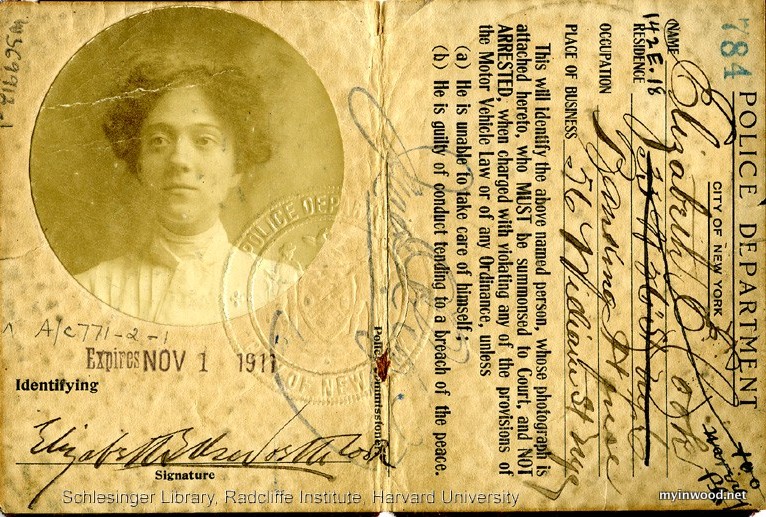 W369712-1
A/C 771-2-1
Expires NOV 1 1911
Identifying
Elizabeth Ellsworth Cook
Signature
POLICE DEPAR
OF NEW
Police Commissioner
784 POLICE DEPARTMENT
CITY OF NEW YORK
NAME Elizabeth E. Cook
142 E. 18
RESIDENCE
OCCUPATION
PLACE OF BUSINESS 56 William St NYC
This will identify the above named person, whose photograph is
attached hereto, who MUST be summonsed to Court, and NOT
ARRESTED, when charged with violating any of the provisions of
the Motor Vehicle Law or of any Ordinance, unless
(a) He is unable to take care of himself;
(b) He is guilty of conduct tending to a breach of the peace.
Schlesinger Library, Radcliffe Institute, Harvard University
myinwood.net